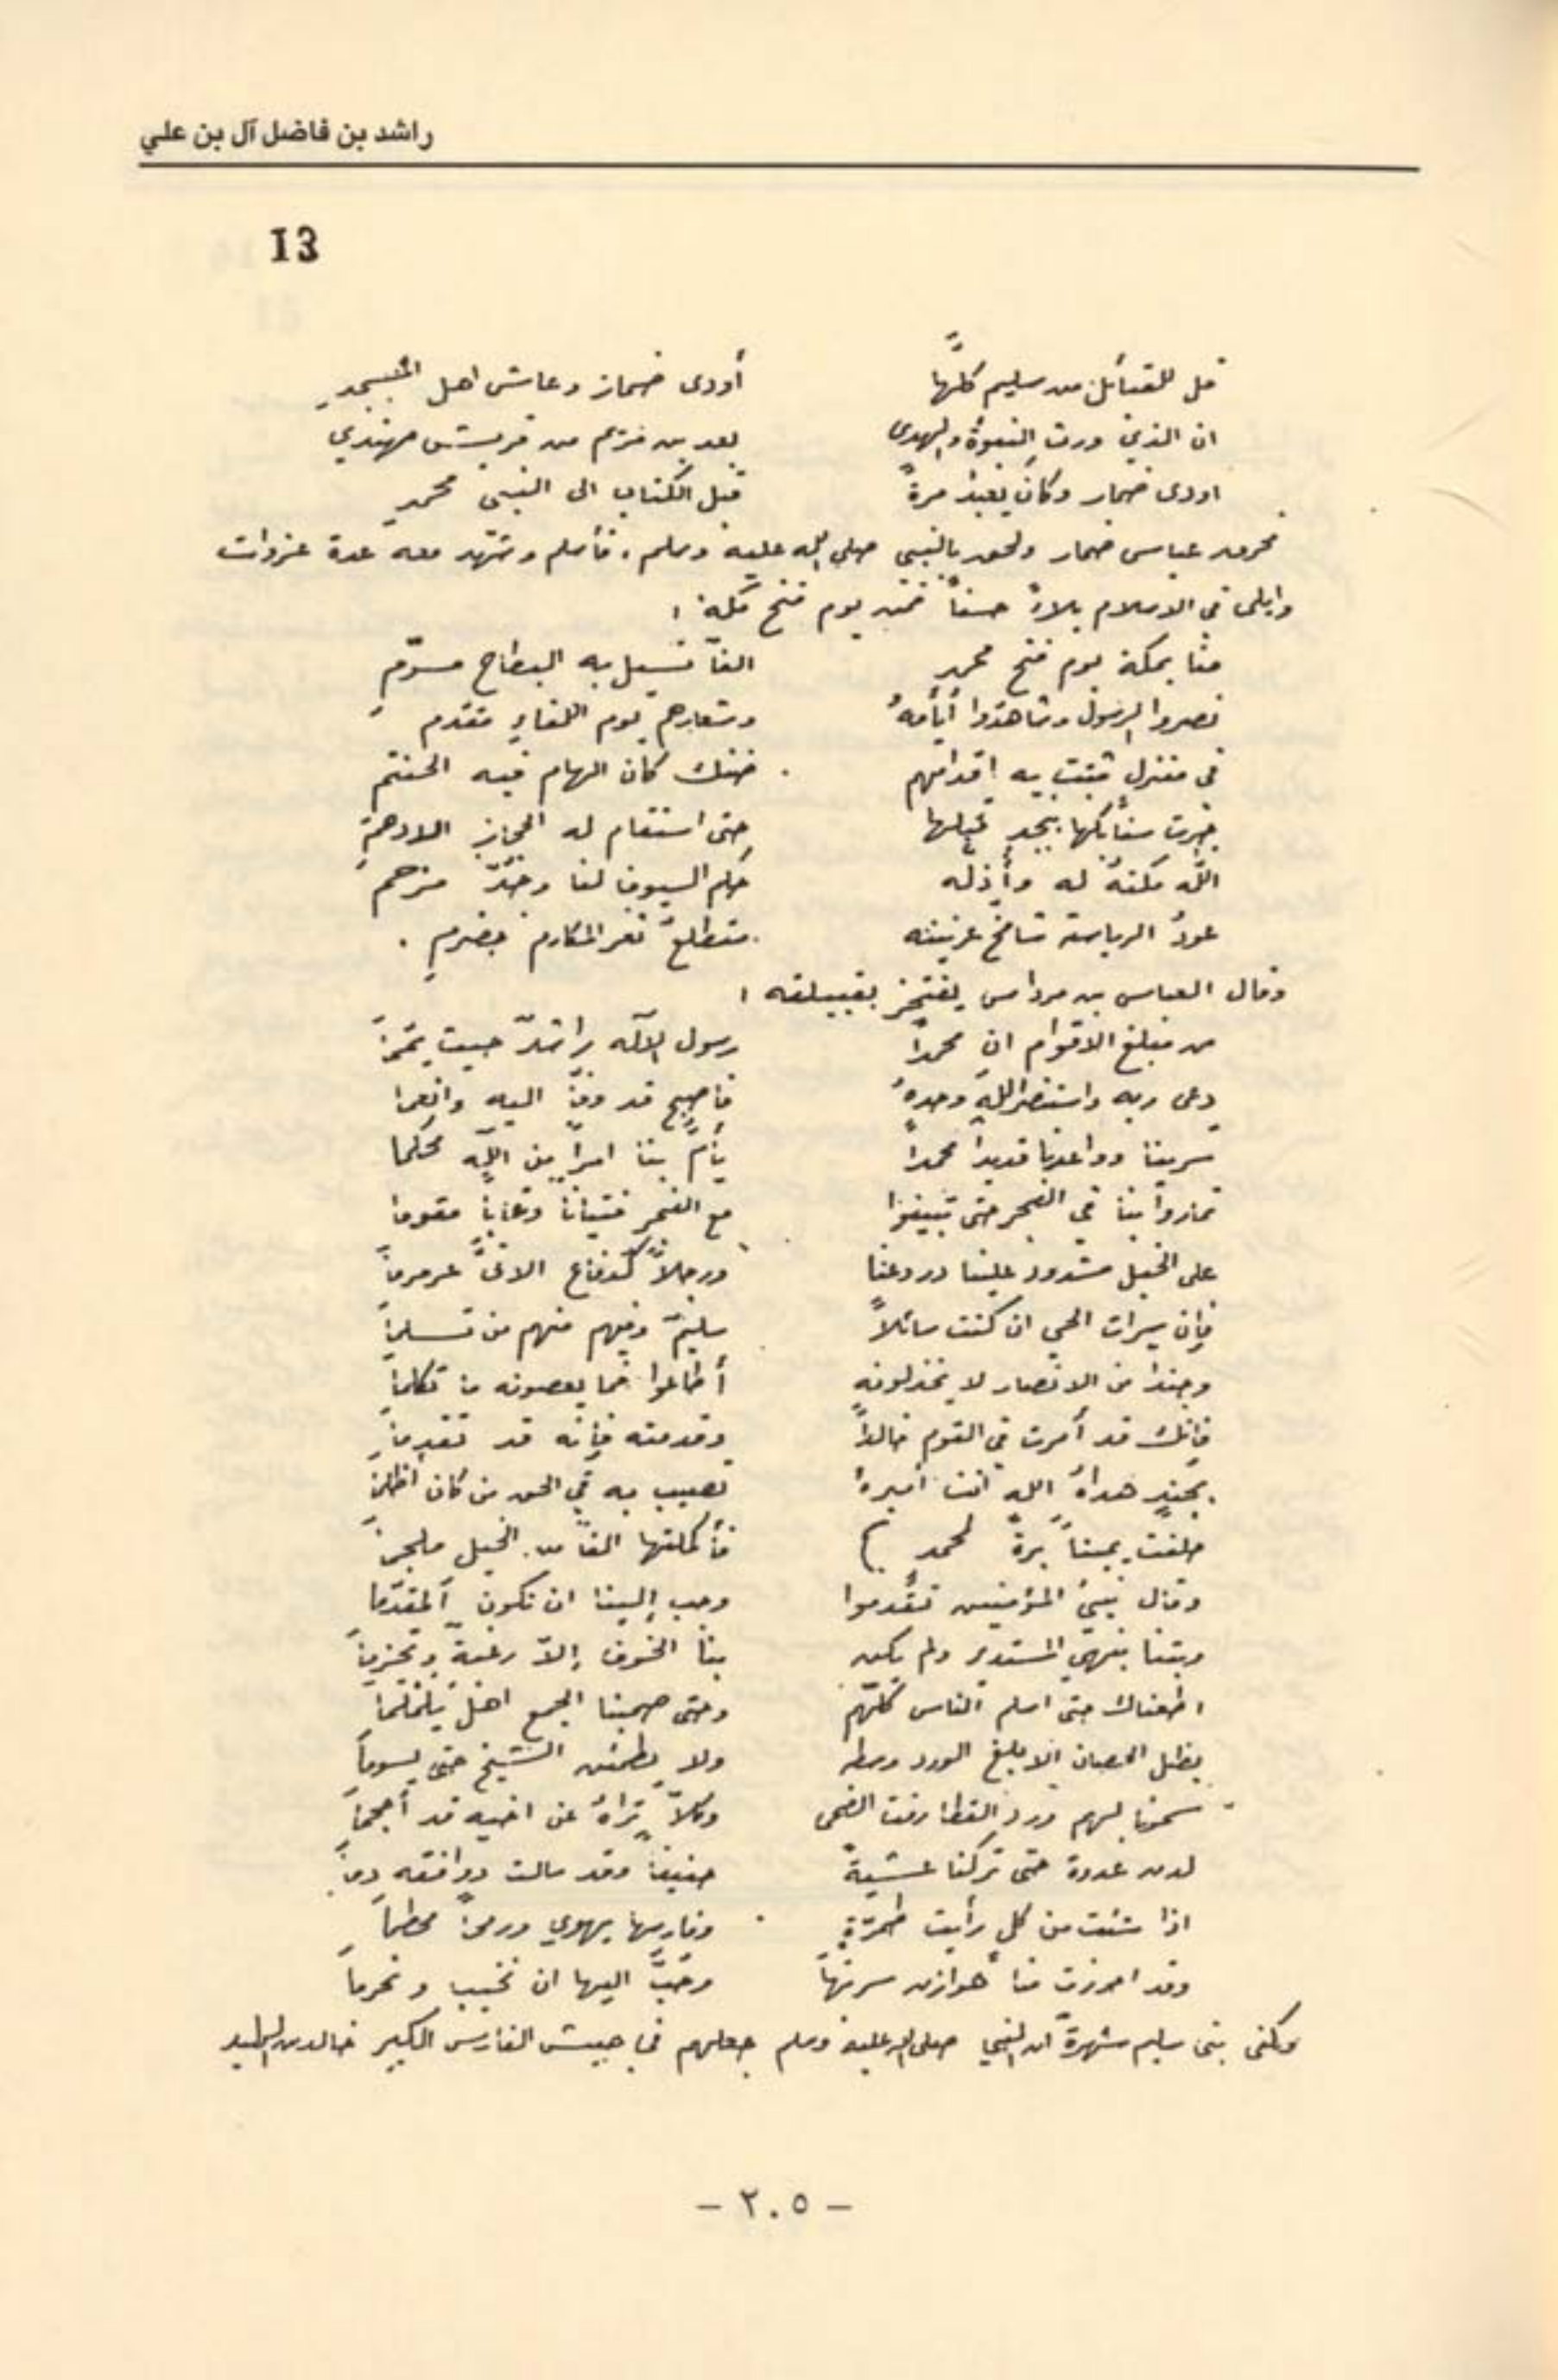 راشد بن فاضل آل بن علي
13
قل للقبائل من سليم كلّها أودى ضمار وعاش اهل المسجد
ان الذي ورث النبوة والهدى بعد بن مريم من قريش مهتدي
اودى ضمار وكان يعبد مرة قبل الكتاب الى النبي محمد
فحرق عباس ضمار ولحق بالنبي صلى الله عليه وسلم، فأسلم وشهد معه عدة غزوات
وابلى في الاسلام بلاءً حسناً فمن يوم فتح مكة :
منا بمكة يوم فتح محمد الفاً تسيل به البطاح مسوّم
نصروا الرسول وشاهدوا أيامهُ وشعارهم يوم اللقاء مقدم
في منزل ثبتت به اقدامهم ضنك كان الهام فيه الحنتم
جرت سنابكها بنجد قبلها حتى استقام له الحجاز الادهم
اللّه مكنهُ له وأذله حكم السيوف لنا وجدّ مزحم
عودُ الرياسة شامخ عرنينه متطلعٌ ثغر المكارم خضرم .
وقال العباس بن مرداس يفتخر بقبيلته :
من مبلغ الاقوام ان محمداً رسول الآله راشدٌ حيث يمّما
دعى ربه واستنصر الله وحدهُ فأصبح قد وفّا اليه وانعما
سرينا وواعدنا قديداً محمداً يأمّ بنا امراً من اللّه محكما
تماروا بنا في الفجر حتى تبينوا مع الفجر فتياناً وغاباً مقوما
على الخيل مشدود علينا دروعنا ورجلاً كدفاع الاتىّ عرمرماً
فإن سراة الحي ان كنت سائلاً سليمٌ وفيهم منهم من تسلماً
وجنداً من الانصار لا يخذلونه أطاعوا فما يعصونه ما تكلماً
فإنك قد أمرت في القوم خالداً وقدمته فإنه قد تقدماً
بجندٍ هداهُ الله انت أميرهُ تصيب به في الحق من كان اظلماً
حلفت يميناً برةً لمحمد فأكملتها الفاً من الخيل ملجماً
وقال نبيُ المؤمنين تقدموا وحب إلينا ان نكون المقدّما
وبتنا بنهي المستدير ولم يكن بنا الخوف إلاّ رغبةً وتحزماً
اطعناك حتى اسلم الناس كلهّم وحتى صبحنا الجمع اهل يلملماً
يظل الحصان الابلق الورد وسطه ولا يطمئن الشيخ حتى يسوماً
سمونا لهم ورد القطا زفت الضحى وكلاً تراهُ عن اخيه قد أحجماً
لدن غدوة حتى تركنا عشيةً حنيناً وقد سالت دوافعه دماً
اذا شئت من كل رأيت طمرّةٍ وفارسها يهوي ورمحاً محطماً
وقد احرزت منا هوازن سربهاً وحُبّ اليها ان نخيب ونحرماً
وكفى بني سليم شهرةً ان النبي صلى الله عليه وسلم جعلهم في جيش الفارس الكبير خالد بن الوليد
– ٢٠٥ –